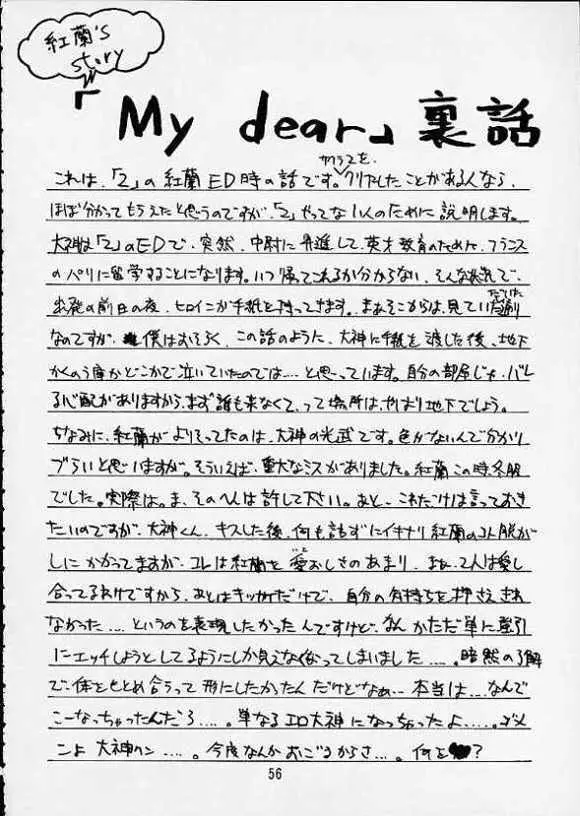 紅蘭's
story
「My dear」裏話
これは、「2」の紅蘭ED時の話です。クリアしたことがある人なら、
ほぼ分かってもらえたと思うのですが、「2」やってない人のために説明します。
大神は「2」のEDで、突然、中尉に昇進して、英才教育のために、フランス
のパリに留学することになります。いつ帰ってこれるか分からない、そんな状況で、
出発の前日の夜、ヒロインが手紙を持ってきます。まぁそこからは、見ていただいた通り
なのですが、僕はおそらく、この話のように、大神に手紙を渡した後、地下
かくのう庫かどこかで泣いていたのでは…と思っています。自分の部屋じゃ、バレ
る心配がありますから、まず誰も来なくて、って場所は、やはり地下でしょう。
ちなみに、紅蘭がよりそってたのは、大神の光武です。色がないんで分かり
づらいと思いますが。そういえば、重大なミスがありました。紅蘭この時、冬服
でした。実際は。ま、そのへんは許して下さい。あと、これだけは言っておき
たいのですが、大神くん、キスした後、何も話さずにイキナリ紅蘭のコト脱が
しにかかってますが、コレは紅蘭を愛おしさのあまり、まぁ、2人は愛し
合ってるわけですから、あとはキッカケだけで、自分の気持ちを押さえきれ
なかった…というのを表現したかったんですけど、なんかただ単に強引
にエッチしようとしてるようにしか見えなくなってしまいました…。暗黙の了解
で、体をもとめ合うって形にしたかったんだけどなぁ…本当は…なんで
こーなっちゃったんだろ…。単なるエロ大神になっちゃったよ…。ゴメ
ンよ 大神クン…。今度なんかおごるからさ…。何を?
56